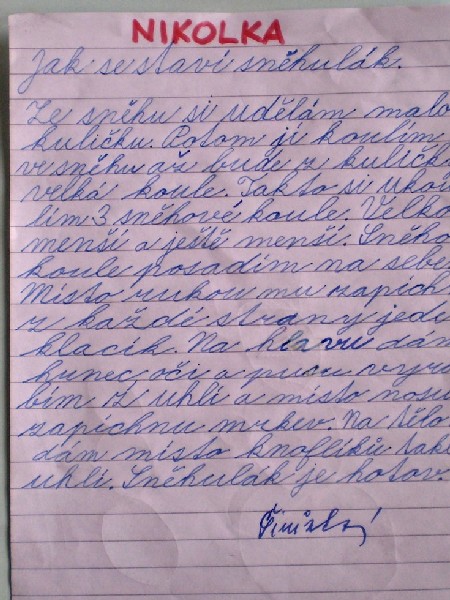 NIKOLKA
Jak se staví sněhulák.
Ze sněhu si udělám malo
kuličku. Potom ji koulím
ve sněhu až bude z kuličk
velká koule. Takto si ukou
lím 3 sněhové koule. Velko
menší a ještě menší. Sněho
koule posadím na sebe
Místo rukou mu zapích
z každí strany jedu
klacík. Na hlavu dám
hrnec, oči a pusu vyro
bím z uhlí a místo nosu
zapíchnu mrkev. Na tělo
dám místo knoflíků také
uhlí. Sněhulák je hotov.